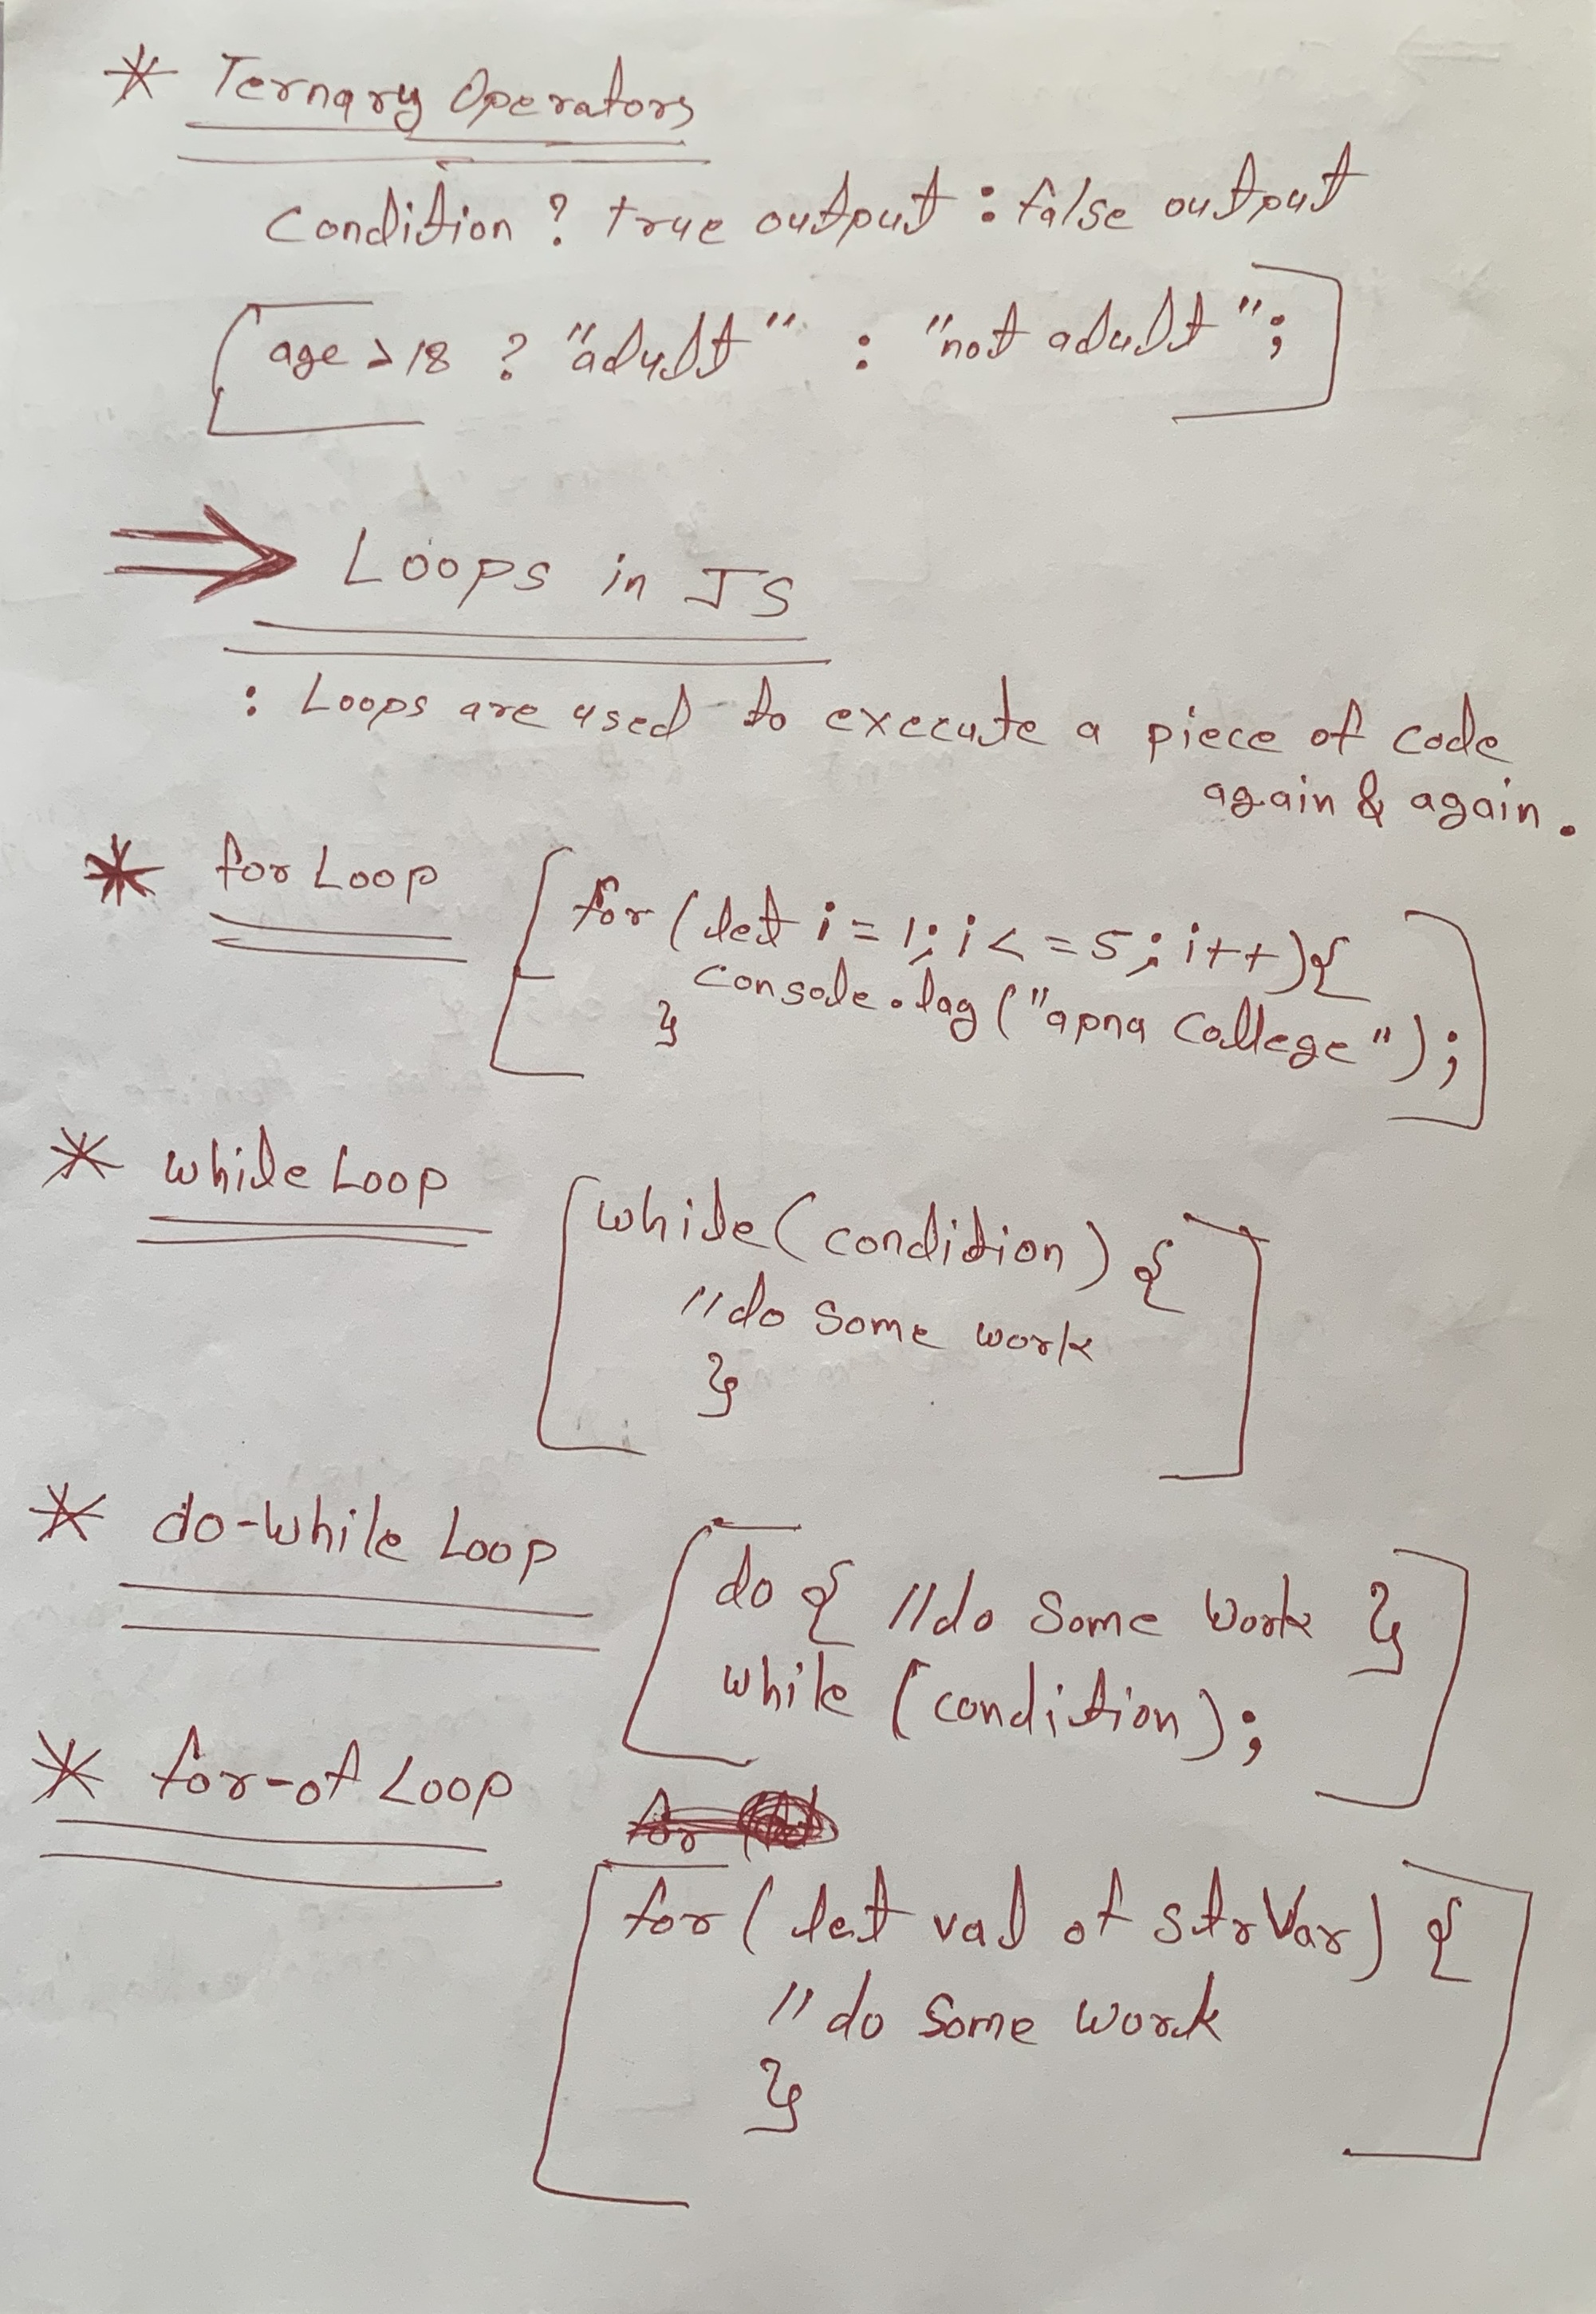 * Ternary Operators
Condition ? true output : false output
age > 18 ? "adult" : "not adult";
⇒ Loops in JS
: Loops are used to execute a piece of code
again & again.
* for Loop
for (let i = 1; i < = 5; i++){
console.log("apna College");
}
* while Loop
while (condition) {
//do some work
}
* do-while Loop
do { //do some work }
while (condition);
* for-of Loop
for (let val of strVar) {
//do some work
}